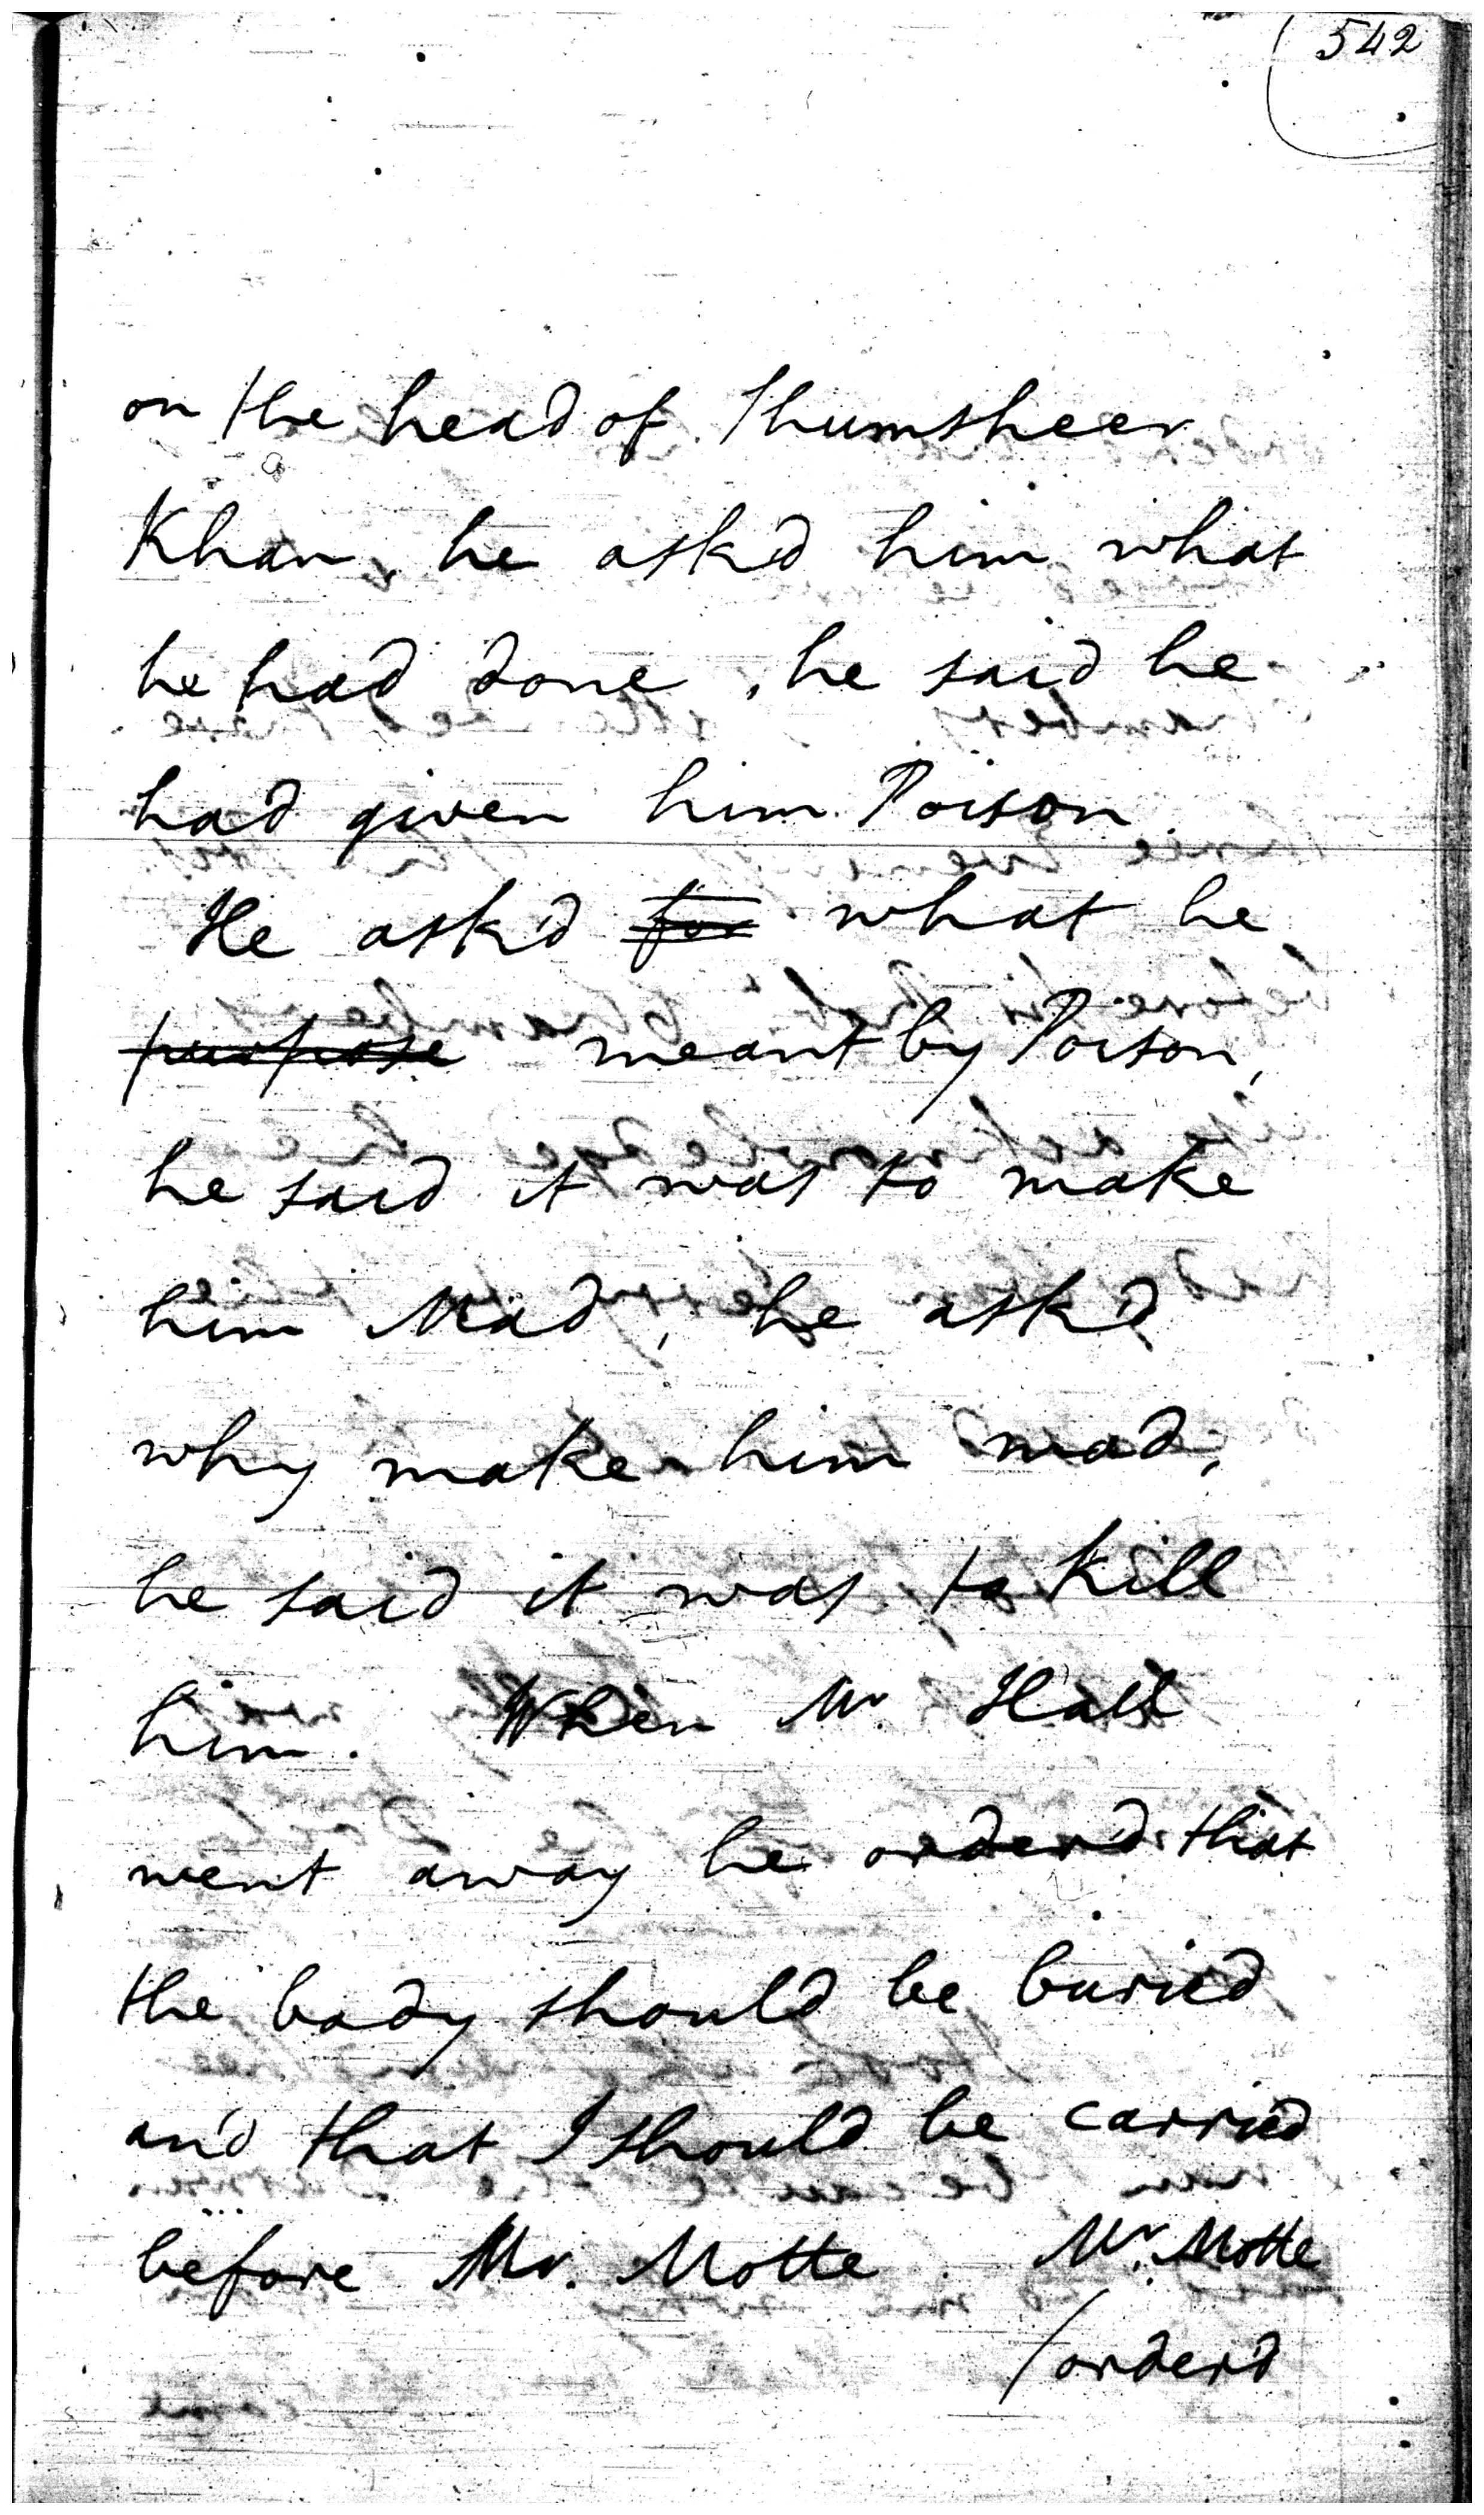 542
on the head of Shumsheer
Khan, he ask'd him what
he had done, he said he
had given him Poison.
He ask'd for what he
purpose meant by Poison,
he said it was to make
him Mad, he ask'd
why make him mad,
he said it was to kill
him. When Mr Hall
went away he order'd that
the body should be buried
and that I should be carried
before Mr. Motte. Mr. Motte
/order'd